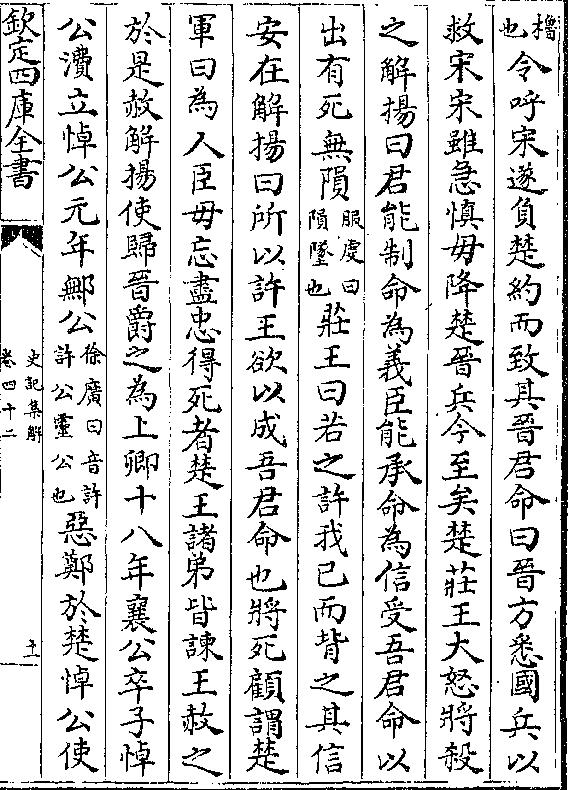 櫓
也
令呼宋遂負楚約而致其晉君命曰晉方悉國兵以
救宋宋雖急慎毋降楚晉兵今至矣楚莊王大怒將殺
之解揚曰君能制命為義臣能承命為信受吾君命以
出有死無隕
服虔曰
隕墜也
莊王曰若之許我已而背之其信
安在解揚曰所以許王欲以成吾君命也將死顧謂楚
軍曰為人臣毋忘盡忠得死者楚王諸弟皆諫王赦之
於是赦解揚使歸晉爵之為上卿十八年襄公卒子悼
公㵒立悼公元年鄦公
徐廣曰音許
許公靈公也
惡鄭於楚悼公使
欽定四庫全書
史記集解
卷四十二